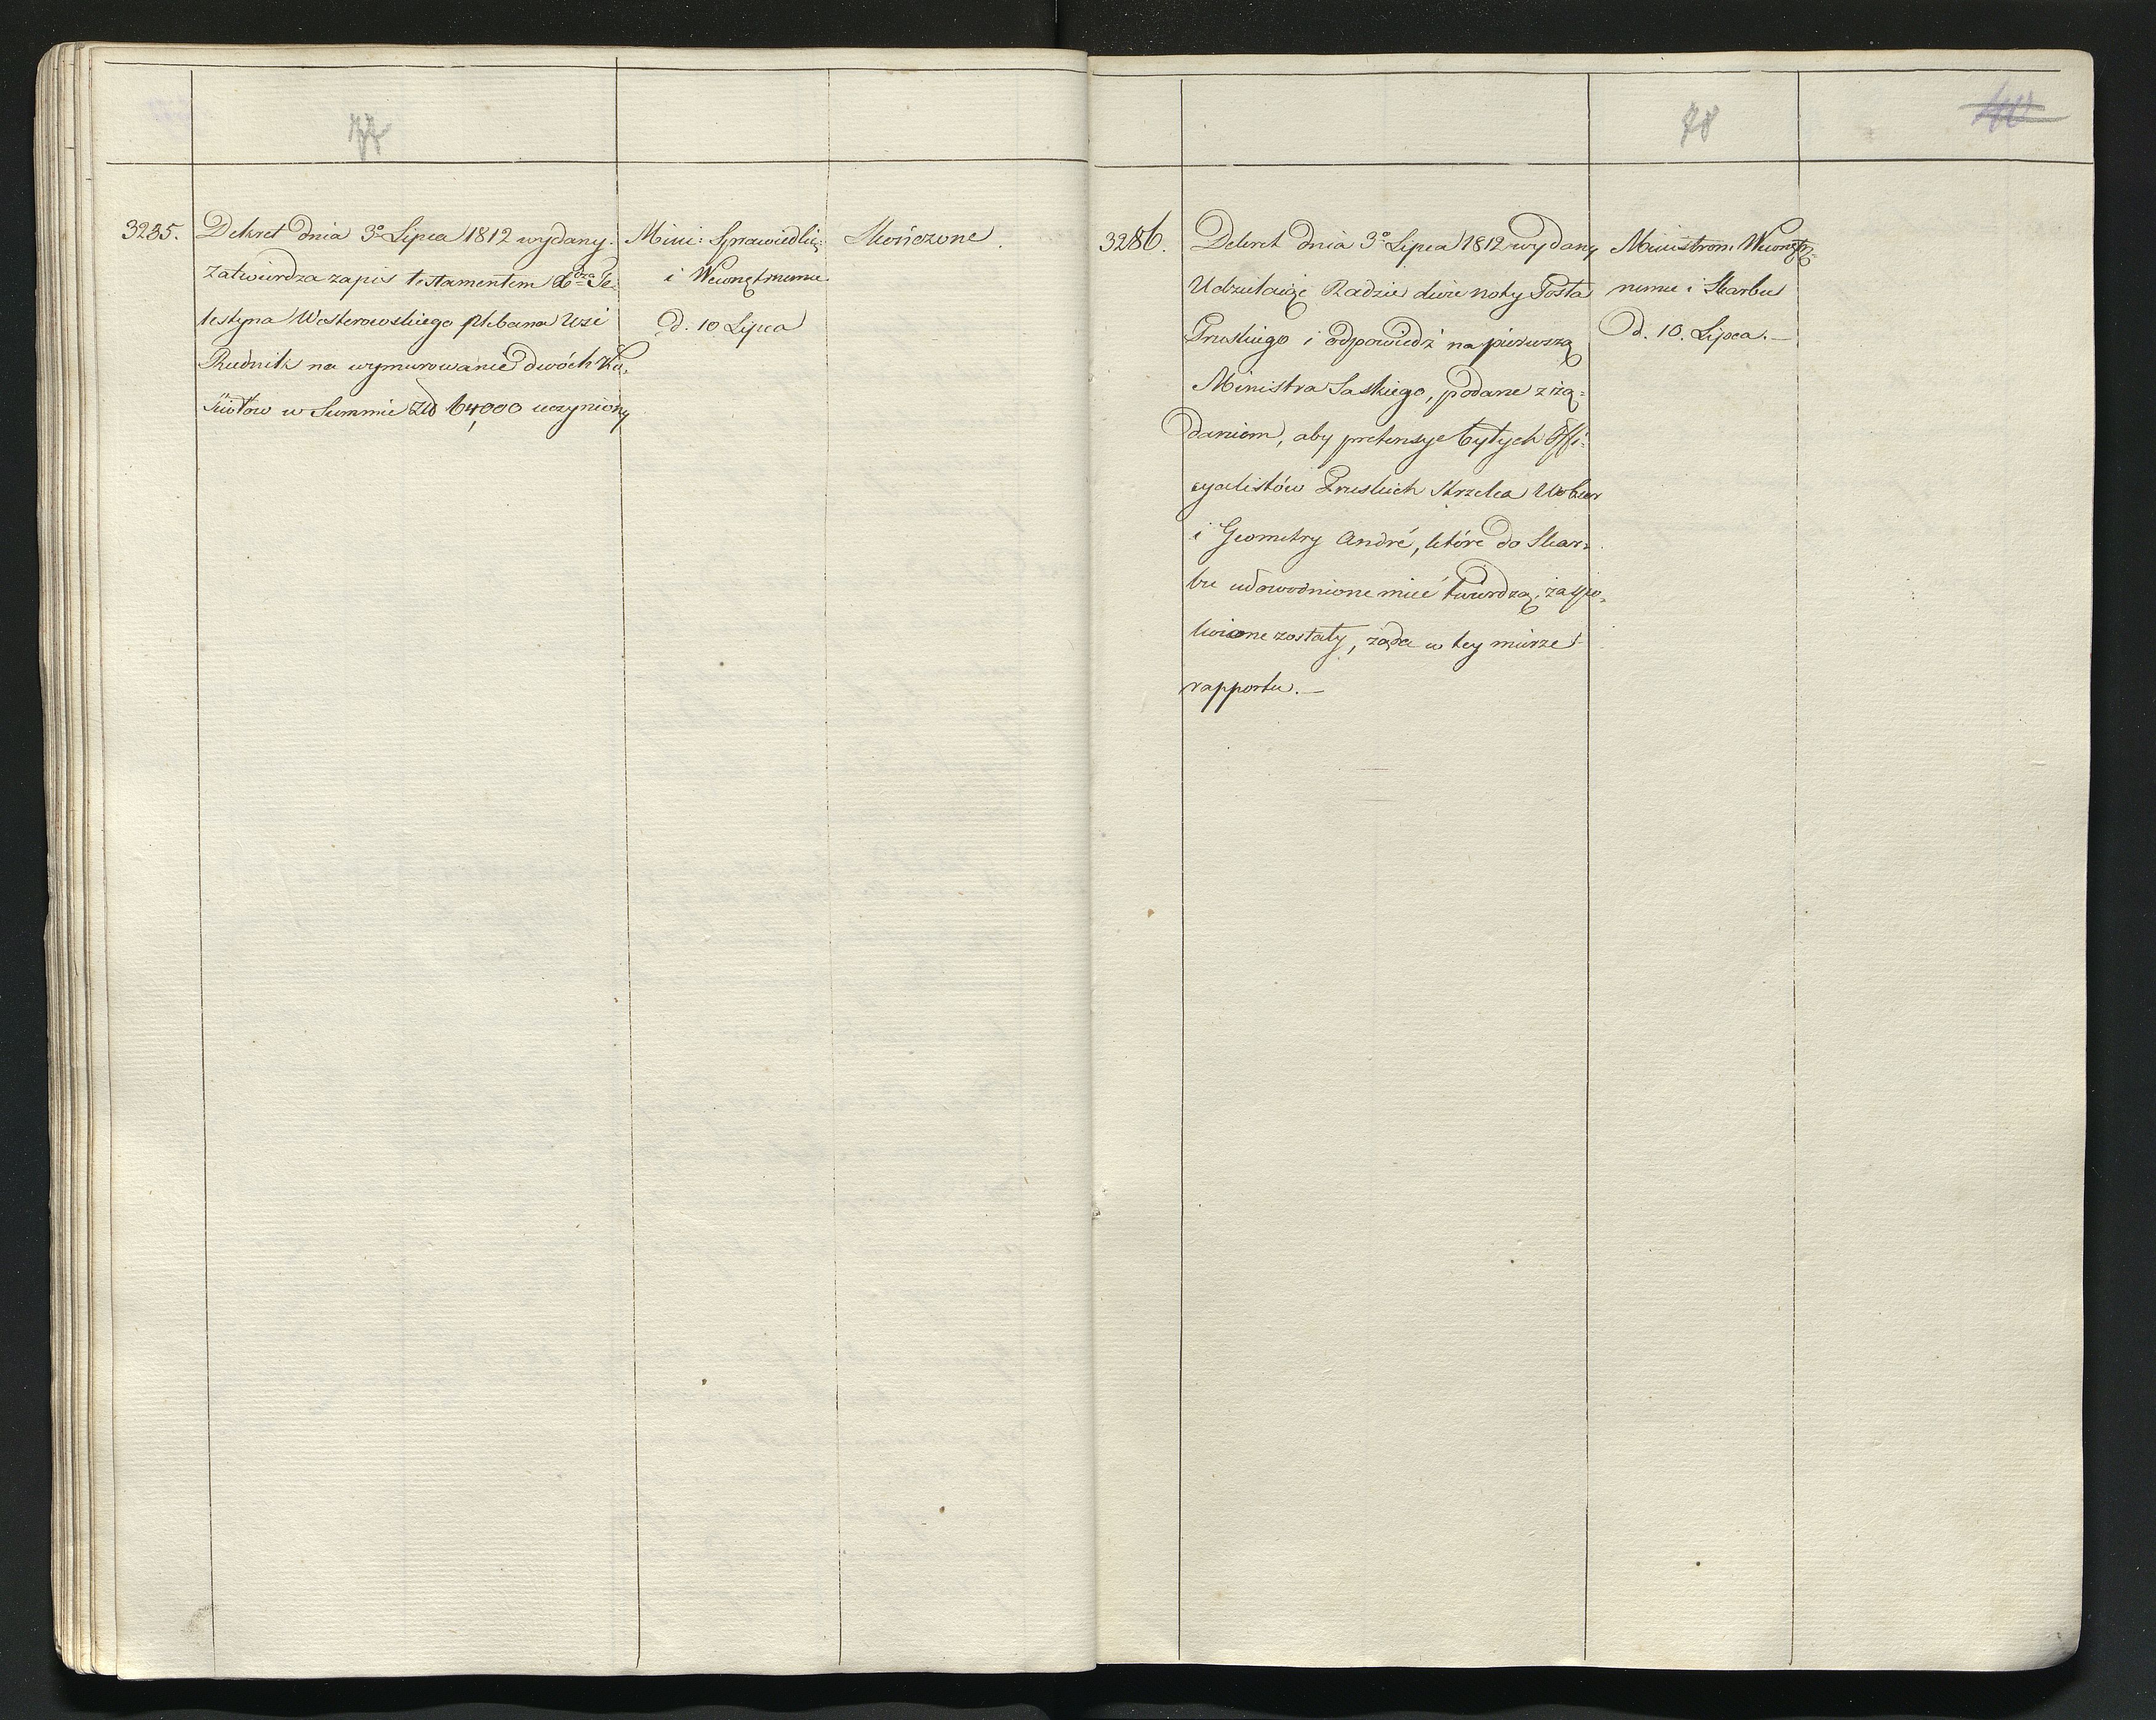 77
3285.
Dekret dnia 3º Lipca 1812 wydany.
zatwierdza zapis testamentem Xdza Ce-
lestyna Wosterowskiego plebana Wsi
Rudnik na wymurowanie dwóch Ko-
ściołow w Summie Złł 64,000 uczyniony
Mini: Sprawiedliw:
i Wewnętrznemu
d. 10 Lipca
Skończone.
78
3286.
Dekret dnia 3º Lipca 1812 wydany
Udzielaiąc Radzie dwie noty Posła
Pruskiego i odpowiedź na pierwszą
Ministra Saskiego, podane z żą-
daniem, aby pretensye byłych Offi-
cyalistów Pruskich Strzelca
i Geometry André, które do Skar-
bu udowodnione mieć twierdzą, zaspo-
koione zostały, żąda w tey mierze
rapportu.—
Ministrom Wewnętrz-
nemu i Skarbu
d. 10. Lipca.—